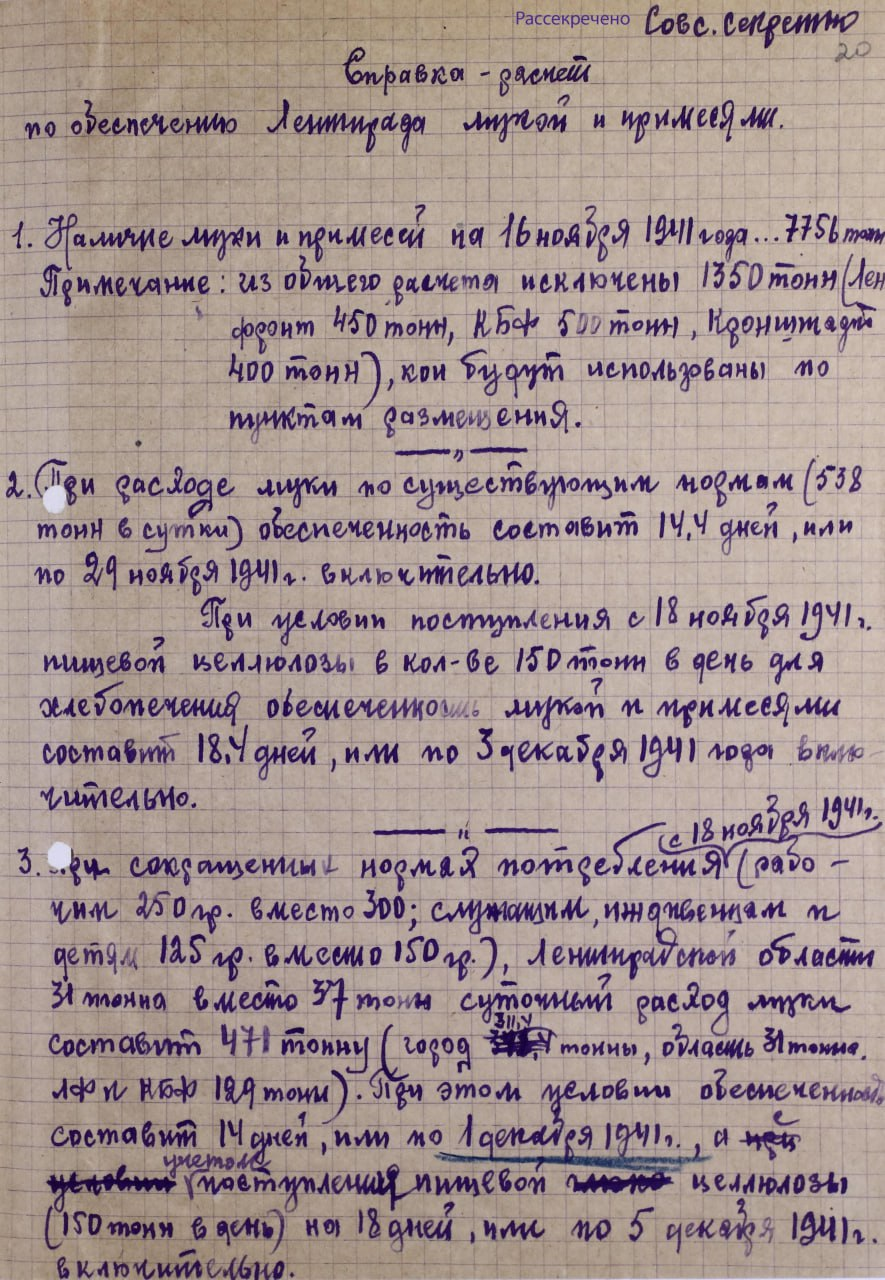 Рассекречено Сов. секретно
20
Справка - расчет
по обеспечению Ленинграда мукой и примесями.
1. Наличие муки и примесей на 16 ноября 1941 года... 7756 тонн
Примечание: из общего расчета исключены 1350 тонн (Лен
фронт 450 тонн, КБФ 500 тонн, Кронштадт
400 тонн), кои будут использованы по
пунктам размещения.
2. При расходе муки по существующим нормам (538
тонн в сутки) обеспеченность составит 14,4 дней, или
по 29 ноября 1941 г. включительно.
При условии поступления с 18 ноября 1941 г.
пищевой целлюлозы в кол-ве 150 тонн в день для
хлебопечения обеспеченность мукой и примесями
составит 18,4 дней, или по 3 декабря 1941 года вклю-
чительно.
(с 18 ноября 1941 г.
3. При сокращенных нормах потребления (рабо-
чим 250 гр. вместо 300; служащим, иждивенцам и
детям 125 гр. вместо 150 гр.), Ленинградской области
31 тонна вместо 37 тонн суточный расход муки
311,4
составит 471 тонну (город тонны, область 31 тонна,
ЛФ и КБФ 129 тонн). При этом условии обеспеченность
составит 14 дней, или по 1 декабря 1941 г., а с
учетом
поступления пищевой целлюлозы
(150 тонн в день) на 18 дней, или по 5 декабря 1941 г.
включительно.